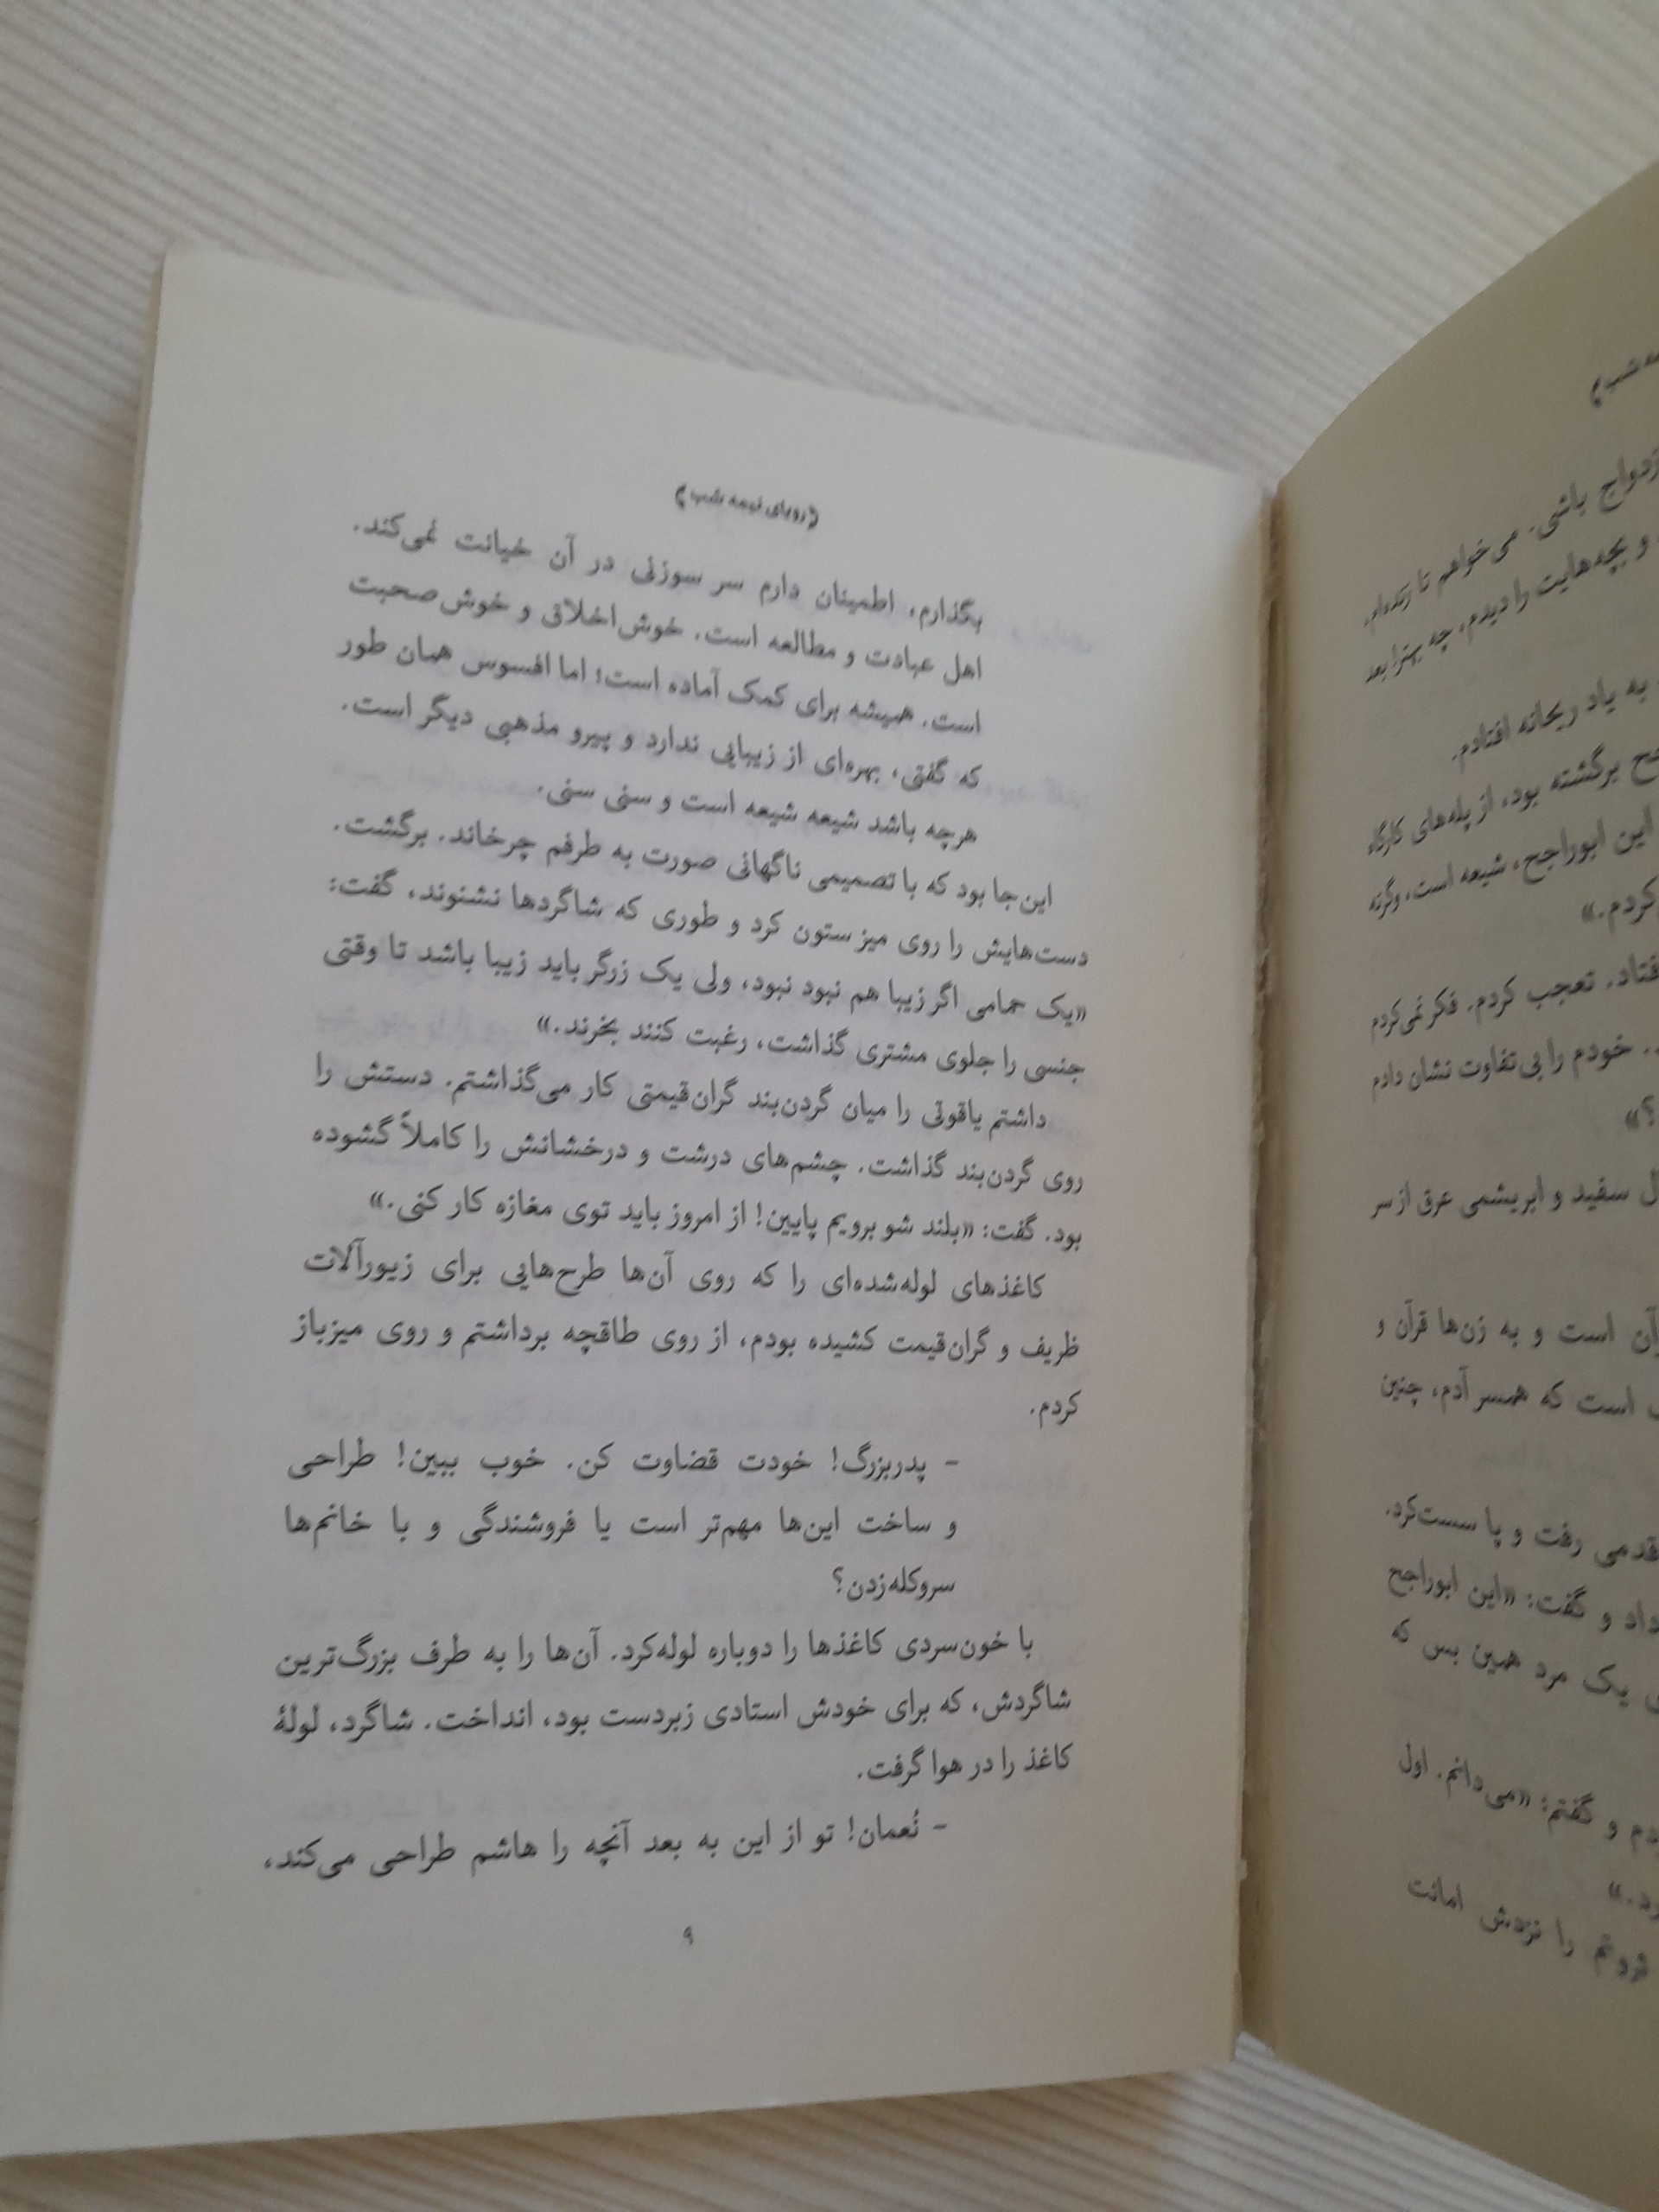 رویای نیمه شب
بگذارم، اطمینان دارم سر سوزنی در آن خیانت نمی‌کند.
اهل عبادت و مطالعه است. خوش‌اخلاق و خوش‌صحبت
است. همیشه برای کمک آماده است؛ اما افسوس همان طور
که گفتی، بهره‌ای از زیبایی ندارد و پیرو مذهبی دیگر است.
هرچه باشد شیعه شیعه است و سنی سنی.
این‌جا بود که با تصمیمی ناگهانی صورت به طرفم چرخاند. برگشت.
دست‌هایش را روی میز ستون کرد و طوری که شاگردها نشنوند، گفت:
«یک حمامی اگر زیبا هم نبود نبود، ولی یک زرگر باید زیبا باشد تا وقتی
جنسی را جلوی مشتری گذاشت، رغبت کنند بخرند.»
داشتم یاقوتی را میان گردن‌بند گران‌قیمتی کار می‌گذاشتم. دستش را
روی گردن‌بند گذاشت. چشم‌های درشت و درخشانش را کاملاً گشوده
بود. گفت: «بلند شو برویم پایین! از امروز باید توی مغازه کار کنی.»
کاغذهای لوله‌شده‌ای را که روی آن‌ها طرح‌هایی برای زیورآلات
ظریف و گران‌قیمت کشیده بودم، از روی طاقچه برداشتم و روی میز باز
کردم.
- پدربزرگ! خودت قضاوت کن. خوب ببین! طراحی
و ساخت این‌ها مهم‌تر است یا فروشندگی و با خانم‌ها
سروکله‌زدن؟
با خون‌سردی کاغذها را دوباره لوله‌کرد. آن‌ها را به طرف بزرگ‌ترین
شاگردش، که برای خودش استادی زبردست بود، انداخت. شاگرد، لولهٔ
کاغذ را در هوا گرفت.
- نُعمان! تو از این به بعد آنچه را هاشم طراحی می‌کند،
۹
باشی. می‌خواهم تا زنده‌ام،
و بچه‌هایت را دیدم، چه بهتر! بعد
به یاد ریحانه افتادم.
برگشته بود، از پله‌های کارگاه
این ابوراجح، شیعه است، وگرنه
کردم.»
تعجب کردم. فکر نمی‌کردم
خودم را بی‌تفاوت نشان دادم
؟»
سفید و ابریشمی عرق از سر
است و به زن‌ها قرآن و
است که همسر آدم، چنین
قدمی رفت و پا سست‌کرد.
داد و گفت: «این ابوراجح
یک مرد همین بس که
و گفتم: «می‌دانم. اول
ثروتم را نزدش امانت